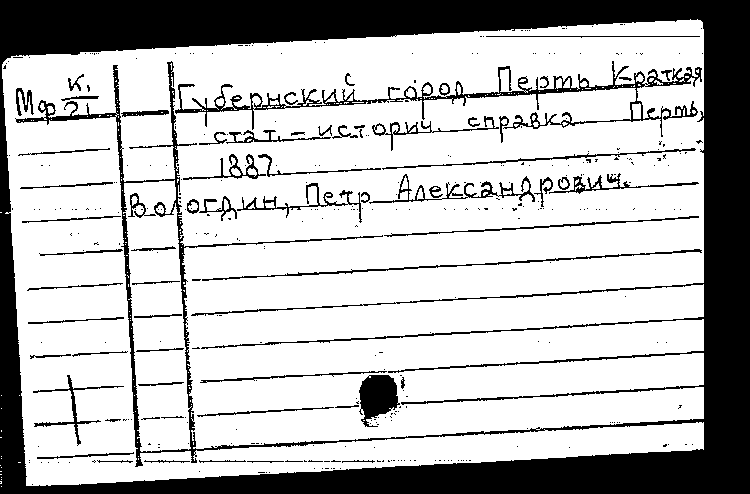 Мф К1/21 Губернский город Пермь Краткая
стат.-историч. справка Пермь,
1887.
Вологдин, Петр Александрович.